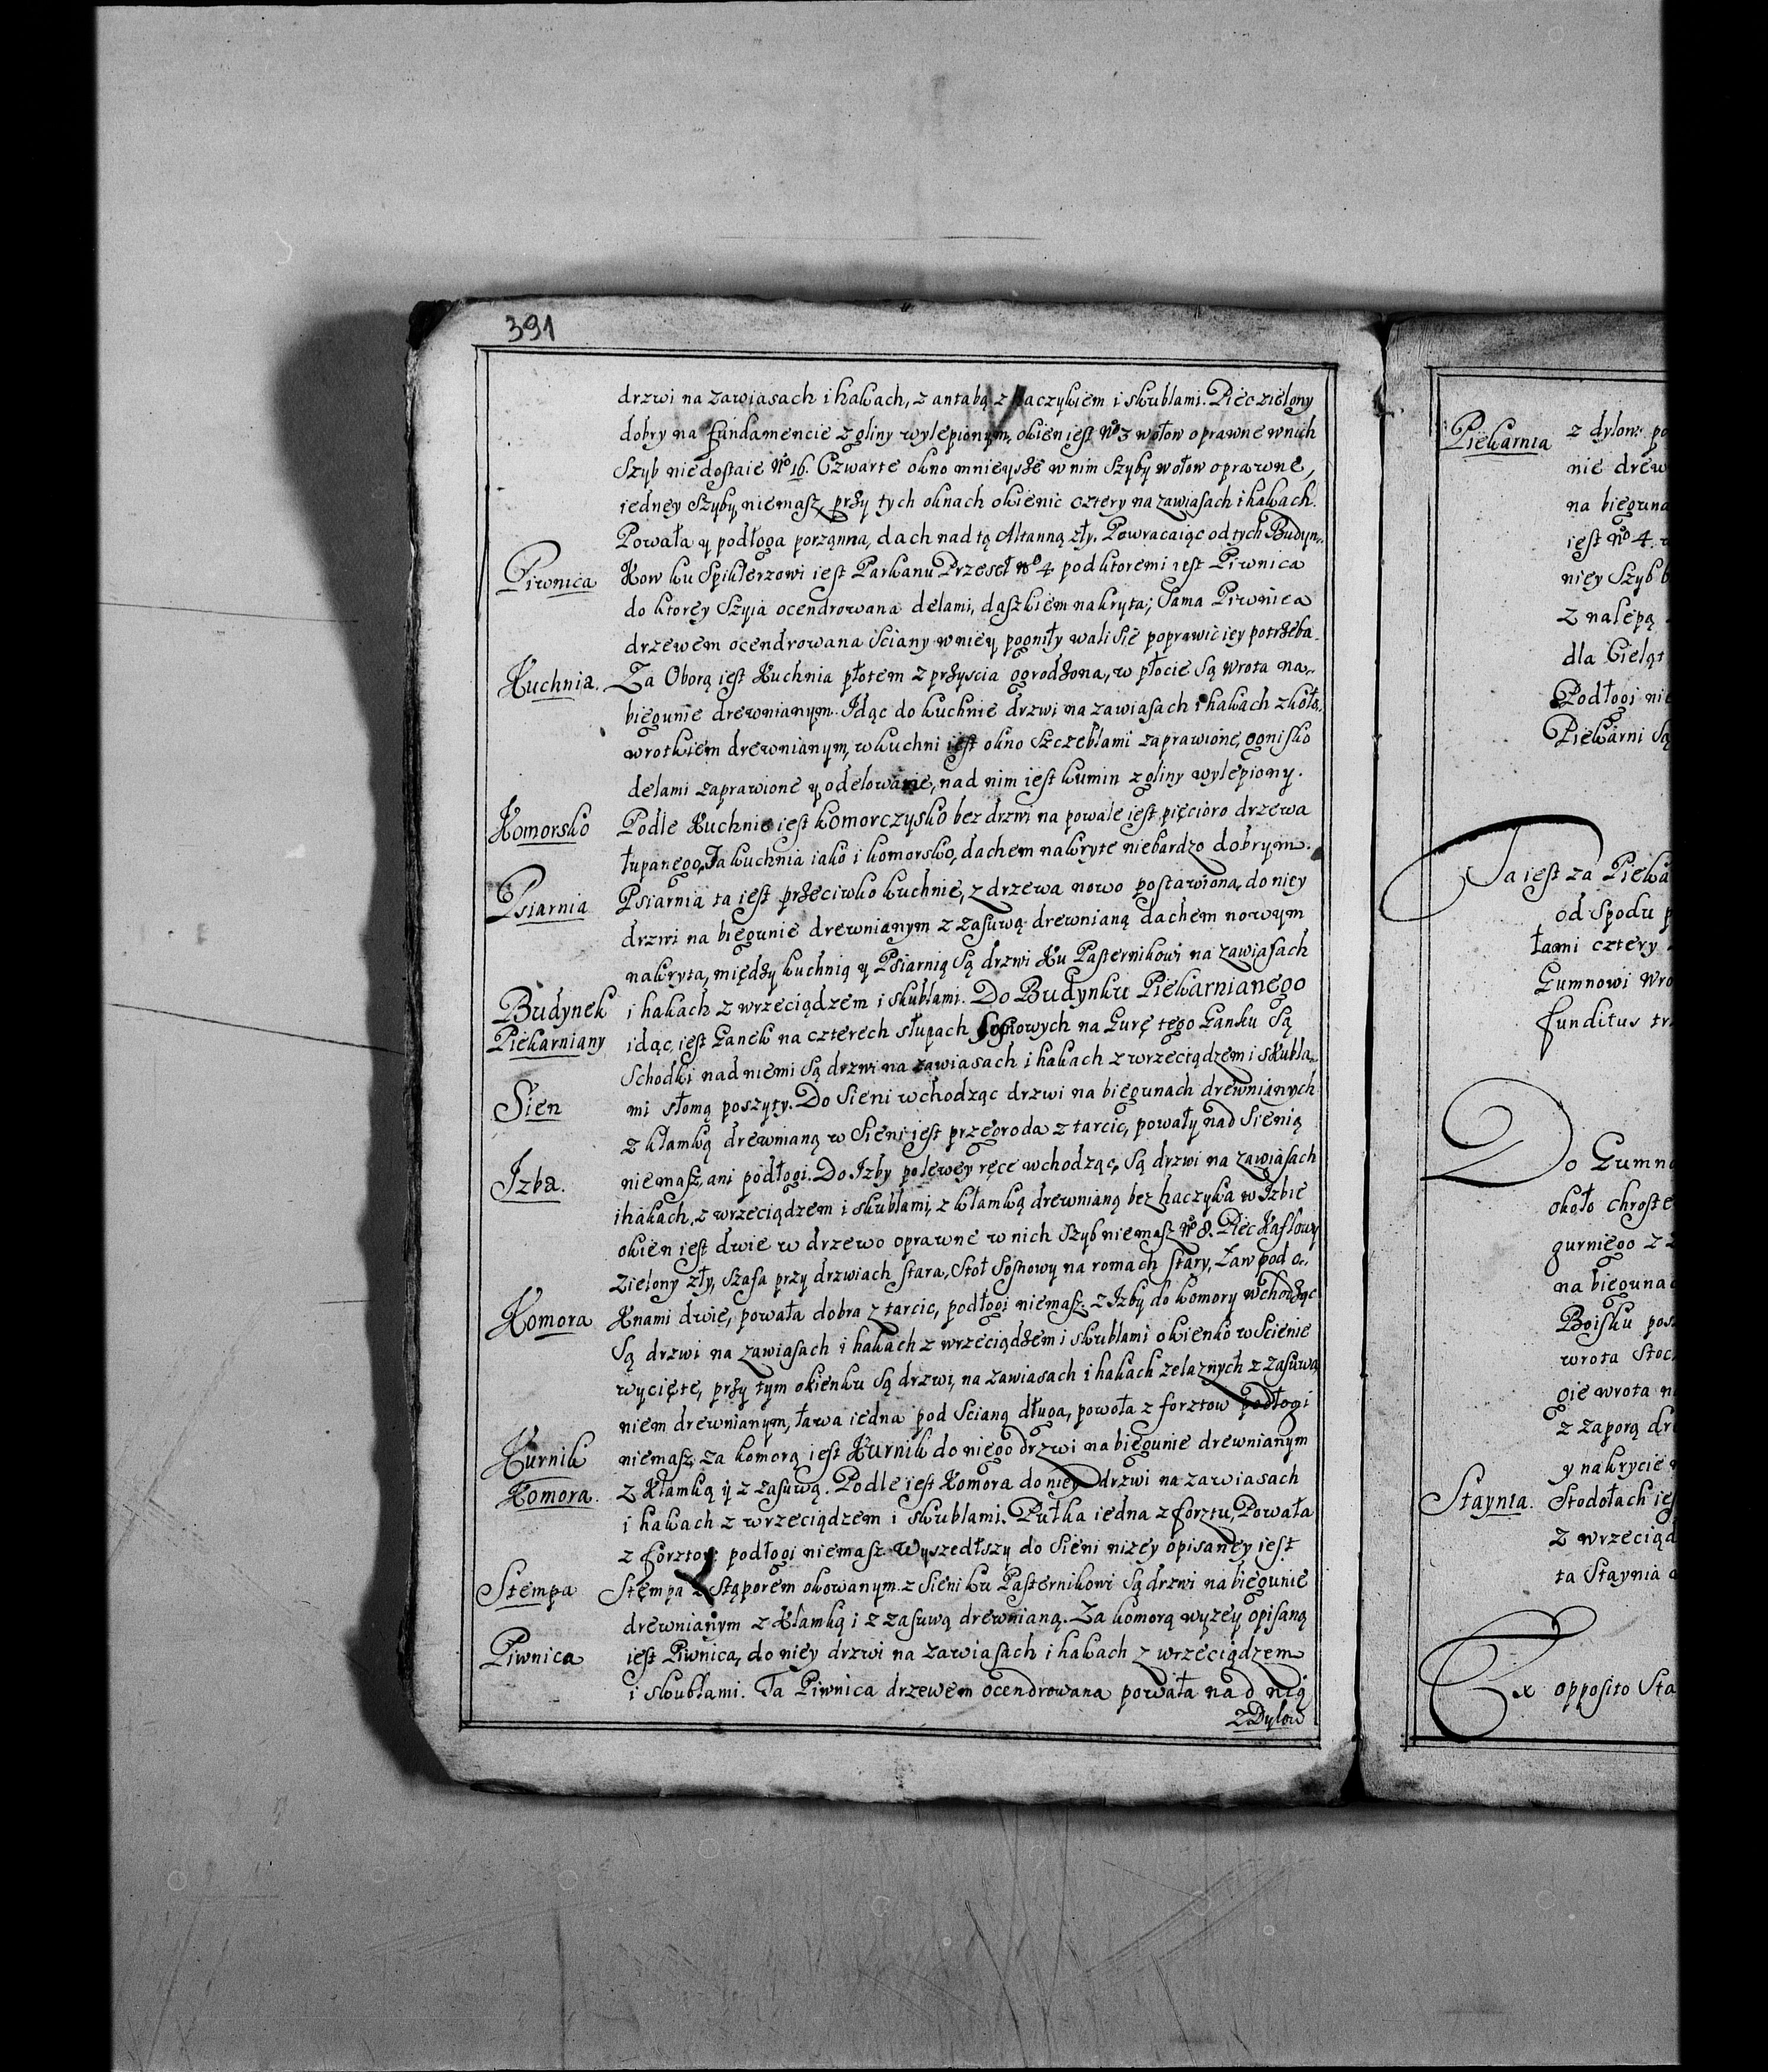 391
drzwi na zawiasach i hakach, z antabą z haczykiem i skublami. Piec zielony
dobry na fundamencie z gliny wylepionym, okien iest No 3 w ołow oprawne w nich
Szyb niedostaie No 16. Czwarte okno mnieysze w nim Szyby w ołow oprawne,
iedney Szyby niemasz, przy tych oknach okienic cztery na zawiasach i hakach.
Powała y podłoga porządna, dach nad tą Altanną zły. Powracaiąc od tych Budyn-
Piwnica
kow ku Spiklerzowi iest Parkanu Przeseł No 4 pod ktoremi iest Piwnica
do ktorey Szyia ocendrowana delami, daszkiem nakryta; Sama Piwnica
drzewem ocendrowana Sciany w niey pogniły wali Sie poprawić iey potrzeba.
Kuchnia.
Za Oborą iest Kuchnia płotem z przyscia ogrodzona, w płocie Są wrota na
biegunie drewnianym. Idąc do kuchnie drzwi na zawiasach i hakach z koło-
wrotkiem drewnianym, w kuchni iest okno Szczeblami zaprawione, ognisko
delami zaprawione y odelowane, nad nim iest kumin z gliny wylepiony.
Komorsko
Podle Kuchnie iest komorczysko bez drzwi na powale iest pięcioro drzewa
łupanego, Ta kuchnia iako i komorsko, dachem nakryte niebardzo dobrym.
Psiarnia
Psiarnia ta iest przeciwko kuchnie, z drzewa nowo postawiona, do niey
drzwi na biegunie drewnianym z zasuwą drewnianą dachem nowym
nakryta, między kuchnią y Psiarnią Są drzwi Ku Pasternikowi na zawiasach
Budynek
i hakach z wrzeciądzem i skublami. Do Budynku Piekarnianego
Piekarniany
idąc, iest Ganek na czterech słupach Sosnowych na Gurę tego Ganku Są
Schodki nad niemi Są drzwi na zawiasach i hakach z wrzeciądzem i skubla-
Sien
mi słomą poszyty. Do Sieni wchodząc drzwi na biegunach drewnianych
z klamką drewnianą w Sieni iest przegroda z tarcic, powały nad Sienią
Izba.
niemasz, ani podłogi. Do Izby po lewey ręce wchodząc, Są drzwi na zawiasach
i hakach, z wrzeciądzem i skublami, z kłamką drewnianą bez haczyka w Izbie
okien iest dwie w drzewo oprawne w nich Szyb niemasz No 8. Piec Kaflowy
Zielony zły, Szafa przy drzwiach stara, Stoł Sosnowy na romach Stary, Ław pod o-
Komora
Knami dwie, powała dobra z tarcic, podłogi niemasz. z Izby do komory wchodząc
Są drzwi na zawiasach i hakach z wrzeciądzem i skublami okienko w Scienie
wycięte, przy tym okienku Są drzwi, na zawiasach i hakach zelaznych z zasuwa-
niem drewnianym, ława iedna pod Scianą długa, powoła z forztow podłogi
Kurnik
niemasz, za komorą iest Kurnik do niego drzwi na biegunie drewnianym
Komora.
z Kłamką y z zasuwą. Podle iest Komora do niey drzwi na zawiasach
i hakach z wrzeciądzem i skublami. Pułka iedna z forztu, Powała
z forztow: podłogi niemasz. Wyszedłszy do Sieni nizey opisaney iest
Stempa
Stęmpa z Stąporem okowanym. z Sieni ku Pasternikowi Są drzwi na biegunie
drewnianym z Klamką i z zasuwą drewnianą. Za komorą wyzey opisaną
Piwnica
iest Piwnica, do niey drzwi na zawiasach i hakach z wrzeciądzem
i skubłami. Ta Piwnica drzewem ocendrowana powała nad nią
z Dylow
Piekarnia
z dylow: po
nie drew
na bieguna
iest No 4.
niey Szyb
z nalepą
dla Cieląt
Podłogi nie
Piekarni Są
Ta iest za Pieka
od Spodu p
łami cztery
Gumnowi Wro
funditus
Do Gumna
około chroste
gurniego z
na biegunac
Boisku pos
wrota Stoc
gie wrota n
z zaporą dr
y nakrycie
Staynia.
Stodołach ies
z wrzeciąd
ta Staynia
Ex opposito Sta